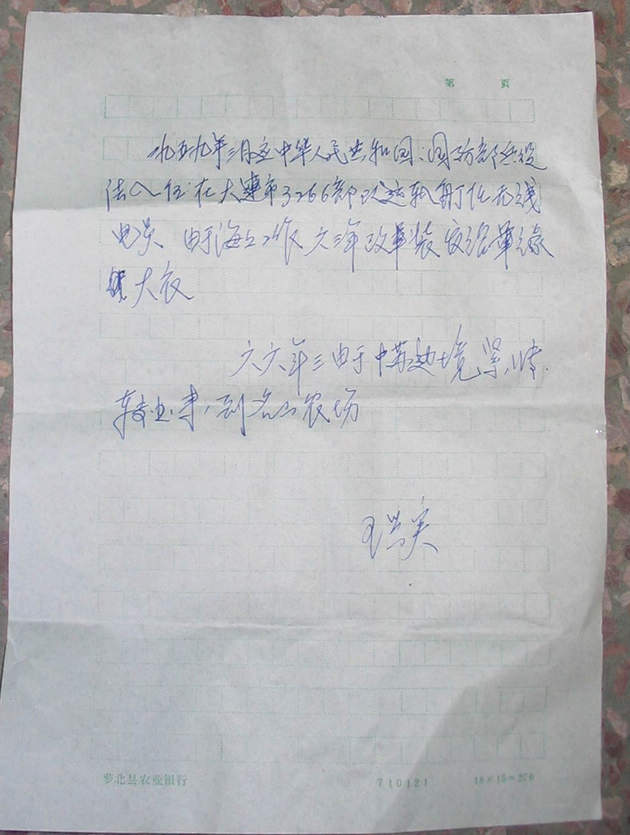 第 頁
九五九年三月在中华人民共和国国防部兵役
法入伍在大连市3266部队 射任无线
电员 由于海上工作六三年改军装 发给军绿
大衣
六六年三由于中苏边境紧张
转业来到名山农场
王
萝北县农业银行 710121 18×15=270